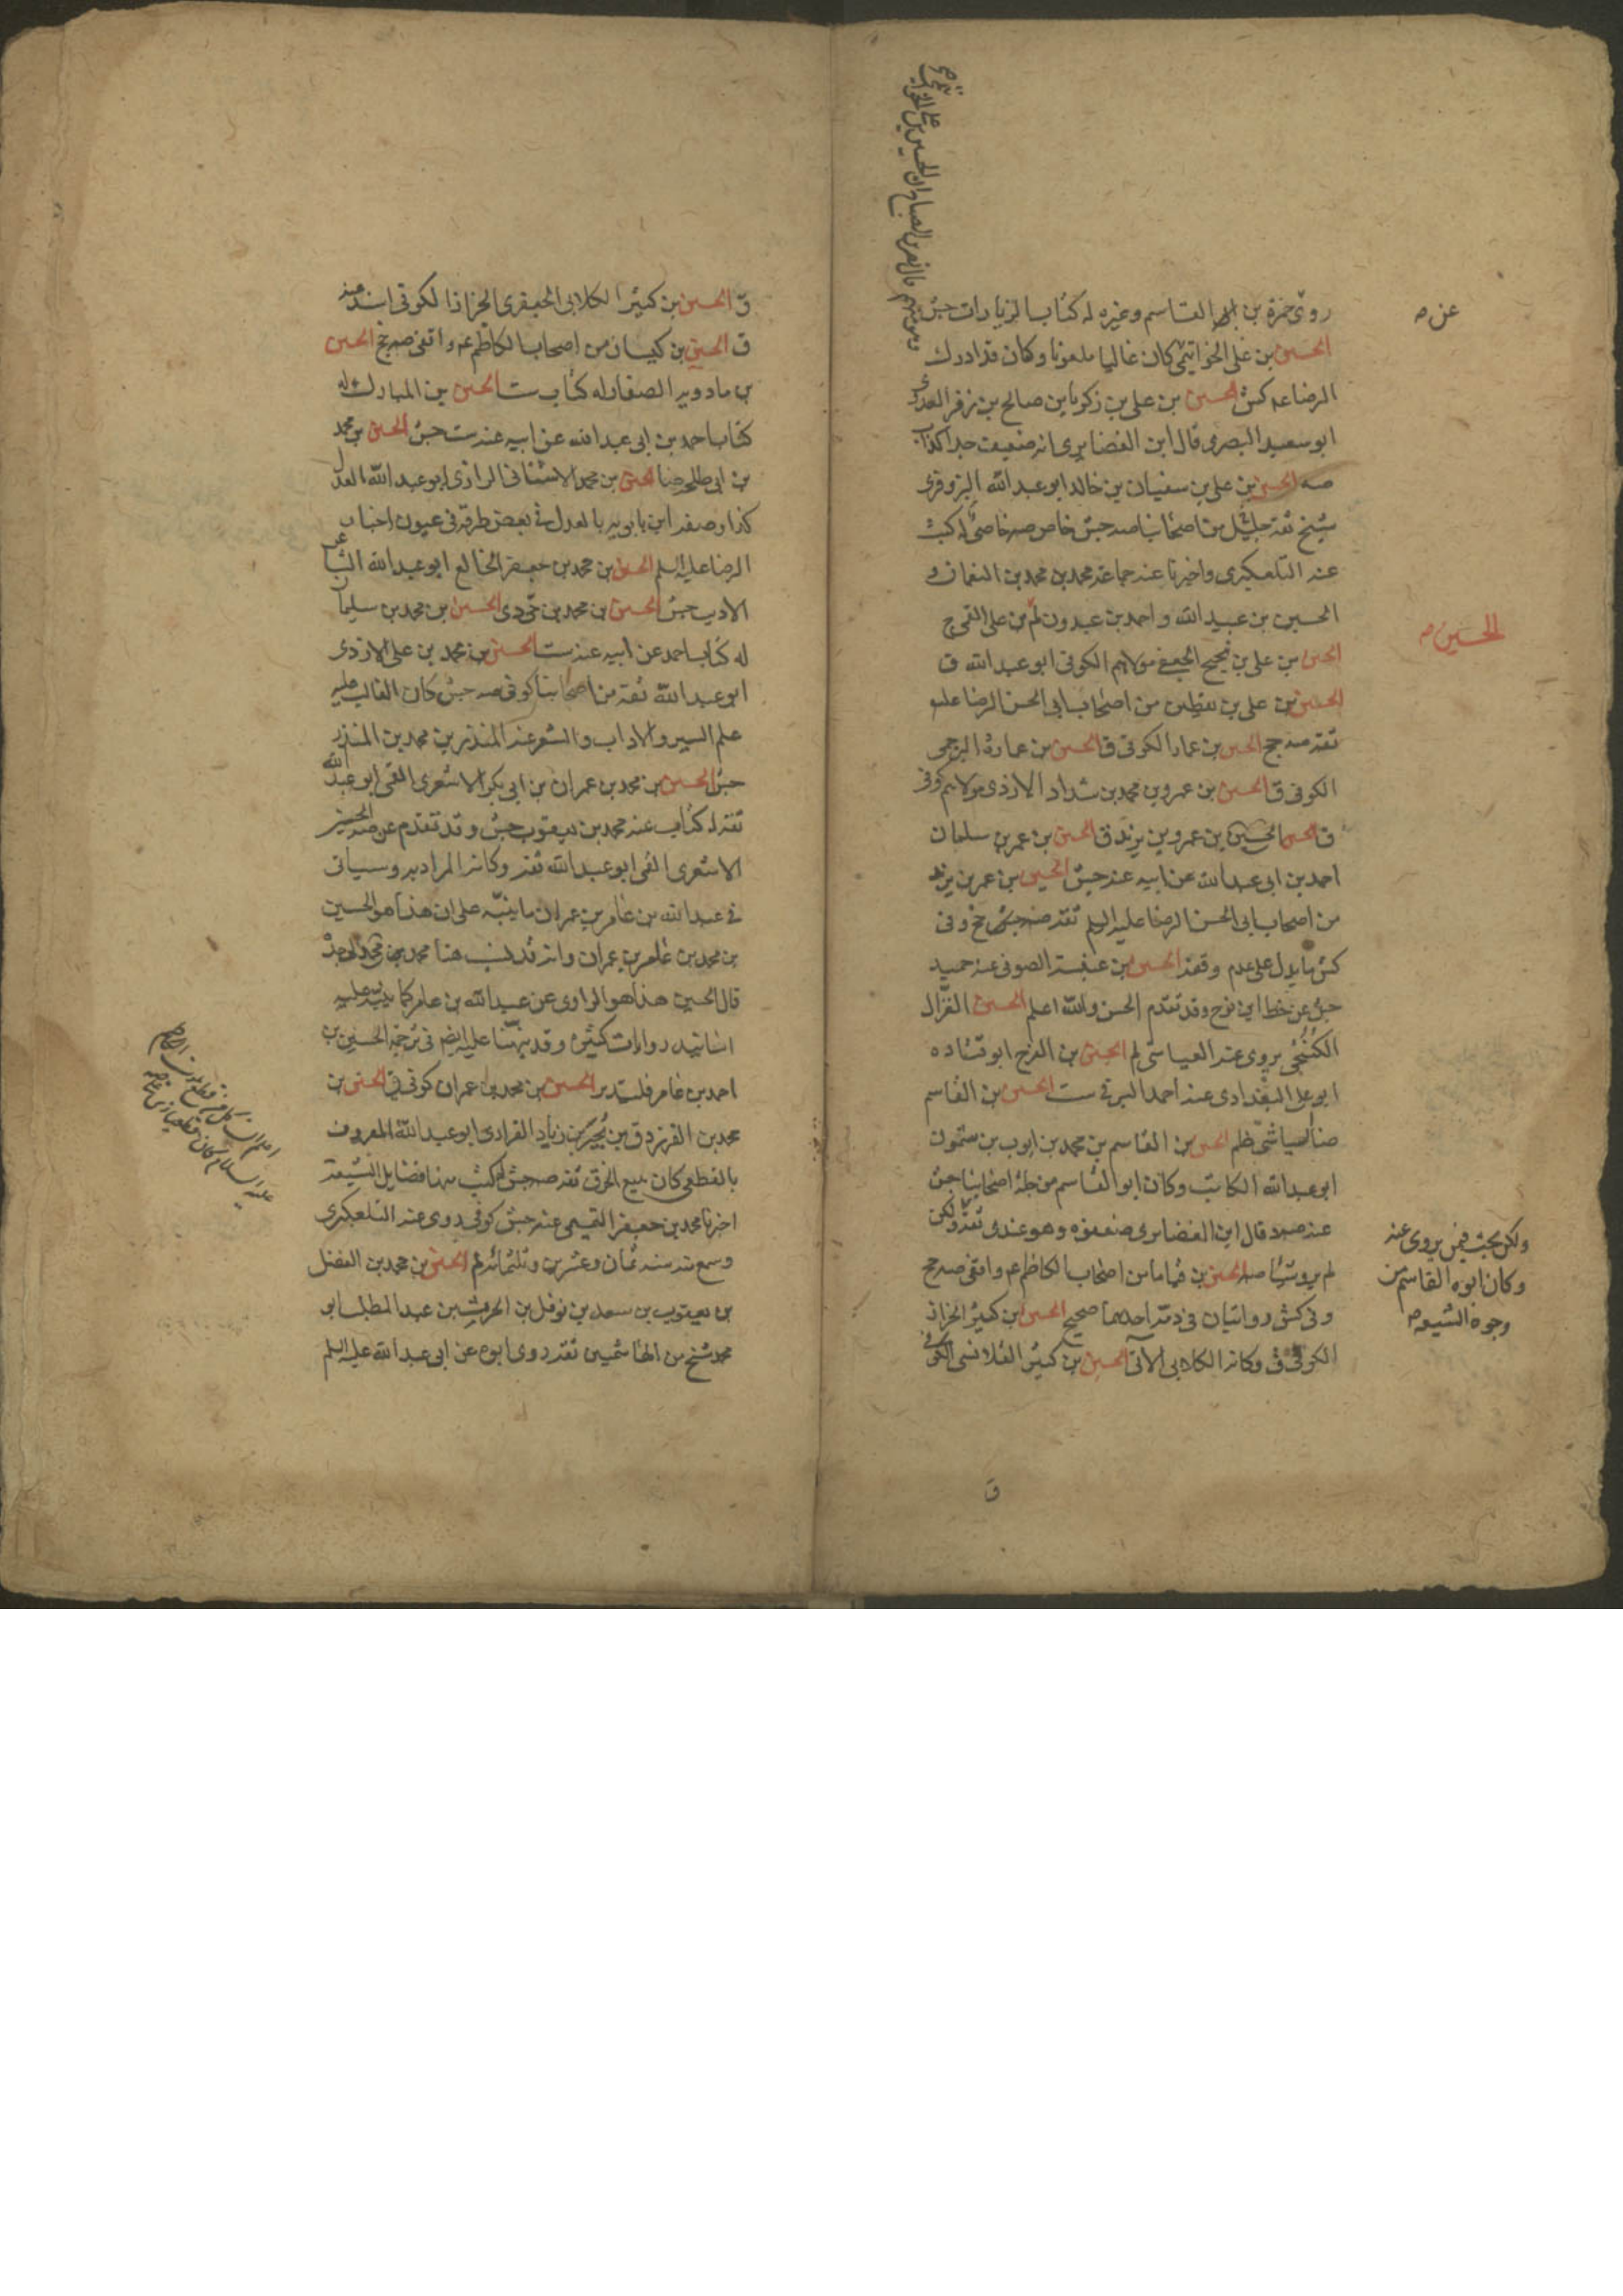 روى حمزة بن القاسم وغيره له كتاب الزيارات جش
عن صه
الحسين بن على الخواتيمى كان غاليا ملعونا وكان قد ادرك
الرضا عم كش الحسين بن على بن زكريا بن صالح بن زفر العدوى
ابو سعيد البصرى قال ابن الغضايرى انه ضعيف جدا كذاب
صه الحسين بن على بن سفيان بن خالد ابو عبد الله البزوفرى
شيخ ثقة جليل من اصحابنا صه جش خاص صه خاصى له كتب
عنه التلعكبرى واخبرنا عنه جماعة محمد بن محمد بن النعمان و
الحسين بن عبيد الله و احمد بن عبدون لم بن على القمى ج
الحسين صه
الحسين بن على بن نجيح الجعفى مولاهم الكوفى ابو عبد الله ق
الحسين بن على بن يقطين من اصحاب ابى الحسن الرضا عليه
ثقة صه جخ الحسين بن عمار الكوفى ق الحسين بن عمارة البرجمى
الكوفى ق الحسين بن عمرو بن محمد بن شداد الازدى مولاهم كوفى
ق الحسين بن عمرو بن يزيد ق الحسين بن عمر بن سلمان
احمد بن ابى عبد الله عن ابيه عنه جش الحسين بن عمر بن يزيد
من اصحاب ابى الحسن الرضا عليه السلم ثقة صه جش جخ وفى
كش ما يدل على عدم وقفه الحسين بن عنبسة الصوفى عنه حميد
جش عن خط ابن نوح وقد تقدم الحسن والله اعلم الحسين الغزال
الكنتجى يروى عنه العياشى لم الحسين بن الفرج ابو قتادة
ابو على البغدادى عنه احمد البرقى ست الحسين بن القاسم
ضا العياشى ظم الحسين بن القاسم بن محمد بن ايوب بن شمون
ابو عبد الله الكاتب وكان ابو القاسم من جلة اصحابنا جش
عنه صه وقال ابن الغضايرى ضعفوه وهو عندى ثقة ولكن
ولكن بحث فيمن يروى عنه
وكان ابوه القاسم من
وجوه الشيعة صه
لم يرو شيئا صه الحسين بن قياما من اصحاب الكاظم عم واقفى صه جخ
وفى كش روايتان فى ذمه احديهما صحيح الحسين بن كثير الخزاز
الكوفى ق وكانه الكلابى الآتى الحسين بن كثير القلانسى الكوفى
ق
ق الحسين بن كثير الكلابى الجعفرى الخزاز الكوفى اسند عنه
ق الحسين بن كيسان من اصحاب الكاظم عم واقفى صه جخ الحسين
بن مادويه الصفار له كتاب ست الحسين بن المبارك له
كتاب احمد بن ابى عبد الله عن ابيه عنه ست جش الحسين بن محمد
بن ابى طلحة ضا الحسين بن محمد الاشنانى الرازى ابو عبد الله العدل
كذا وصفه ابن بابويه بالعدل فى بعض طرقه فى عيون اخبار
الرضا عليه السلم الحسين بن محمد بن جعفر الخالع ابو عبد الله الشاعر
الاديب جش الحسين بن محمد بن حى دى الحسين بن محمد بن سليمان
له كتاب احمد عن ابيه عنه ست الحسين بن محمد بن على الازدى
ابو عبد الله ثقة من اصحابنا كوفى صه جش كان الغالب عليه
علم السير والاداب والشعر عنه المنذر بن محمد بن المنذر
جش الحسين بن محمد بن عمران بن ابى بكر الاشعرى القمى ابو عبد الله
ثقة له كتاب عنه محمد بن يعقوب جش وقد تقدم عن صه الحسين
الاشعرى القمى ابو عبد الله ثقة وكانه المراد به وسياتى
فى عبد الله بن عامر بن عمران ما ينبه على ان هذا هو الحسين
بن محمد بن عامر بن عمران وانه قد نسب هنا محمد بن الى جده
قال الحسين هذا هو الراوى عن عبد الله بن عامر كما ينبه عليه
اسانيد روايات كثيرة وقد نبهنا عليه ايضا فى ترجمة الحسين بن
احمد بن عامر فليتدبر الحسين بن محمد بن عمران كوفى ق الحسين بن
محمد بن الفرزدق بن بجير بن زياد الفزارى ابو عبد الله المعروف
بالقطعى كان يبيع الخرق ثقة صه جش له كتب منها فضايل الشيعة
اخبرنا محمد بن جعفر التميمى عنه جش كوفى روى عنه التلعكبرى
وسمع منه سنة ثمان وعشرين وثلثمائة لم الحسين بن محمد بن الفضل
بن يعقوب بن سعد بن نوفل بن الحرث بن عبد المطلب ابو
محمد شيخ من الهاشميين ثقة روى ابوه عن ابى عبد الله عليه السلم